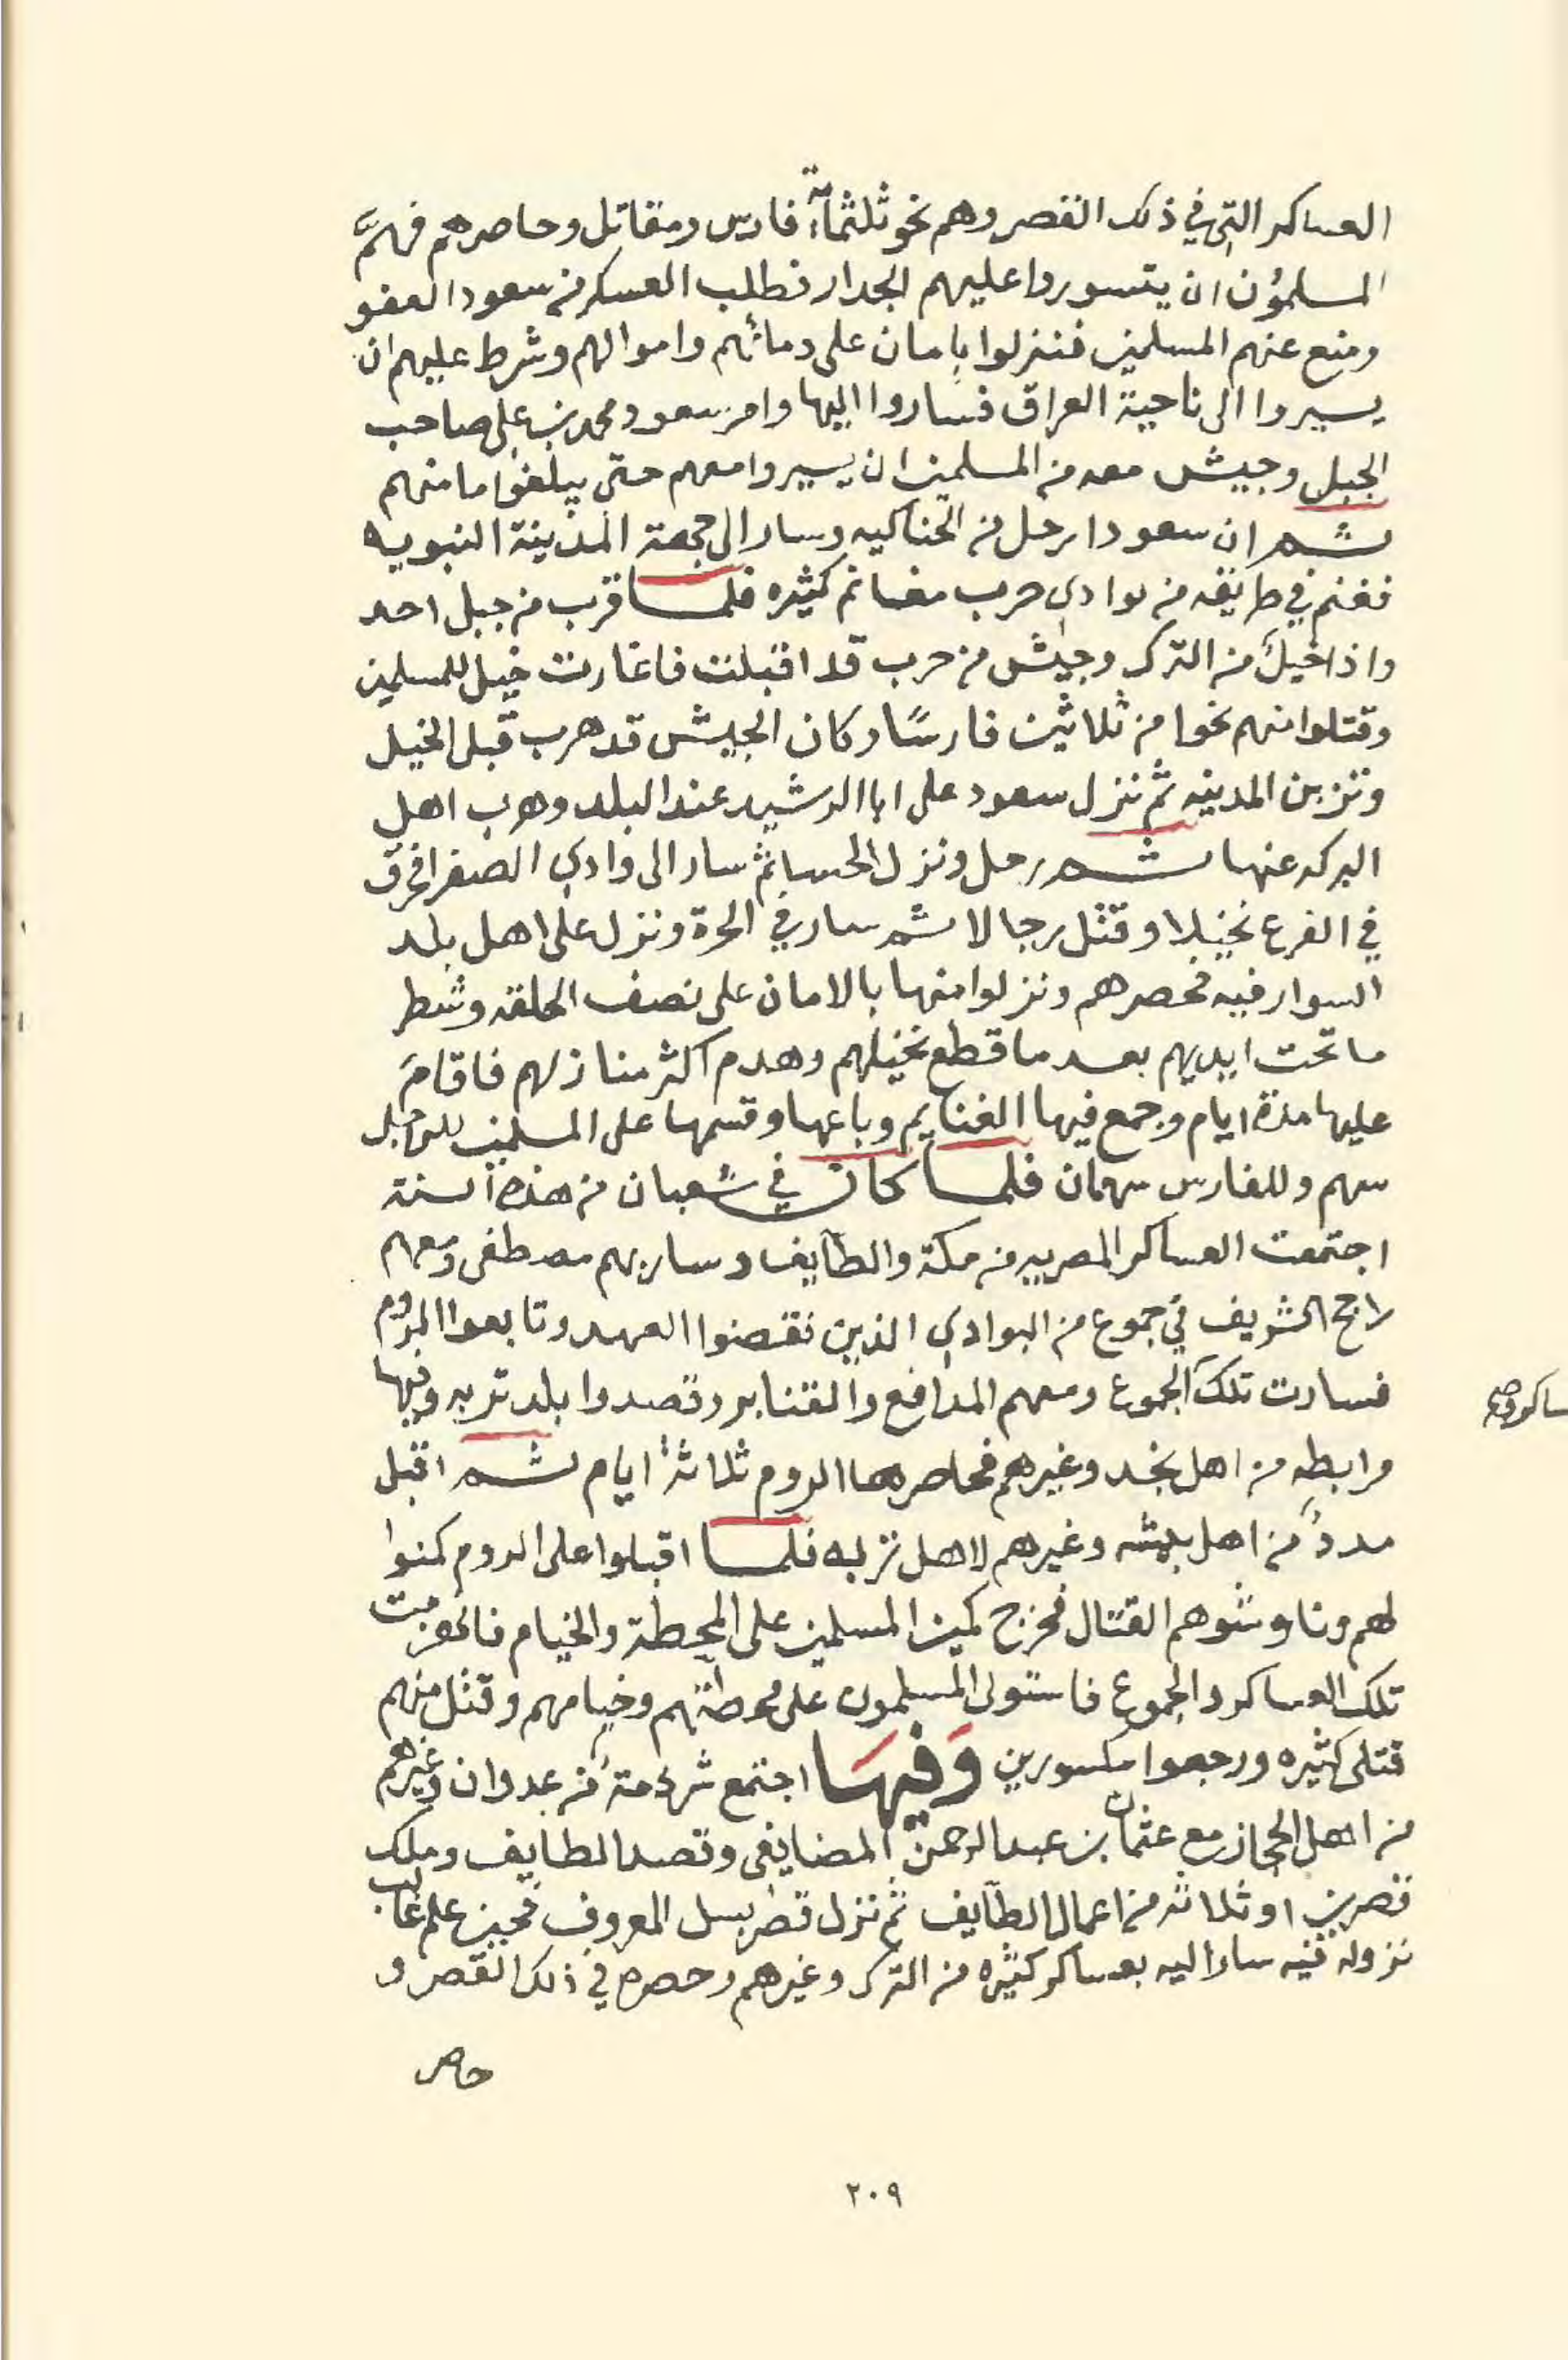 العساكر التي في ذلك القصر وهم نحو ثلثمآية فارس ومقاتل وحاصرهم فهمَّ
المسلمون ان يتسوروا عليهم الجدار فطلب العسكر من سعود العفو
ومنع عنهم المسلمين فنزلوا بامان على دمائهم واموالهم وشرط عليهم ان
يسيروا الى ناحية العراق فساروا اليها وامر سعود محمد بن علي صاحب
الجبل وجيش معه من المسلمين ان يسيروا معهم حتى يبلغوا مامنهم
ثم ان سعودا رحل من الحناكيه وسار الى جهة المدينة النبويه
فغنم في طريقه من بوادي حرب مغانم كثيره فلما قرب من جبل احد
واذا خيل من الترك وجيش من حرب قد اقبلت فاغارت خيل للمسلمين
وقتلوا منهم نحوا من ثلاثين فارسًا وكان الجيش قد هرب قبل الخيل
وتزبن المدينه ثم نزل سعود على ابا الرشيد عند البلد وهرب اهل
البركه عنها ثم رحل ونزل الحسا ثم سار الى وادي الصفرا فحرق
في الفرع نخيلا وقتل رجالا ثم سار في الحرة ونزل على اهل بلد
السوارقيه فحصرهم ونزلوا منها بالامان على نصف الحلقه وشطر
ما تحت ايديهم بعد ما قطع نخيلهم وهدم اكثر منازلهم فاقامَ
عليها مدة ايام وجمع فيها الغنايم وباعها وقسمها على المسلمين للراجل
سهم وللفارس سهمان فلما كان في شعبان من هذه السنة
اجتمعت العساكر المصريه من مكة والطآيف وسار بهم مصطفى ومعهم
راجح الشريف في جموع من البوادي الذين نقضوا العهد وتابعوا الروم
فسارت تلك الجموع ومعهم المدافع والقنابر وقصدوا بلد تربه وفيها
مرابطه من اهل نجد وغيرهم فحاصرها الروم ثلاثة ايام ثم اقبل
مددٌ من اهل بيشه وغيرهم لاهل تربه فلما اقبلوا على الروم كمنوا
لهم وناوشوهم القتال فخرج كمين المسلمين على المحطة والخيام فانهزمت
تلك العساكر والجموع فاستولى المسلمون على محطتهم وخيامهم وقتل منهم
قتلى كثيره ورجعوا مكسورين وَفيهَا اجتمع شرذمة من عدوان وغيرهم
من اهل الحجاز مع عثمان بن عبد الرحمن المضايفي وقصد الطايف وملك
قصرين او ثلاثه من اعمال الطآيف ثم نزل قصر بسل المعروف فحين علم غالب
نزوله فيه سار اليه بعساكر كثيره من الترك وغيرهم وحصره في ذلك القصر و
حاصر
٢٠٩